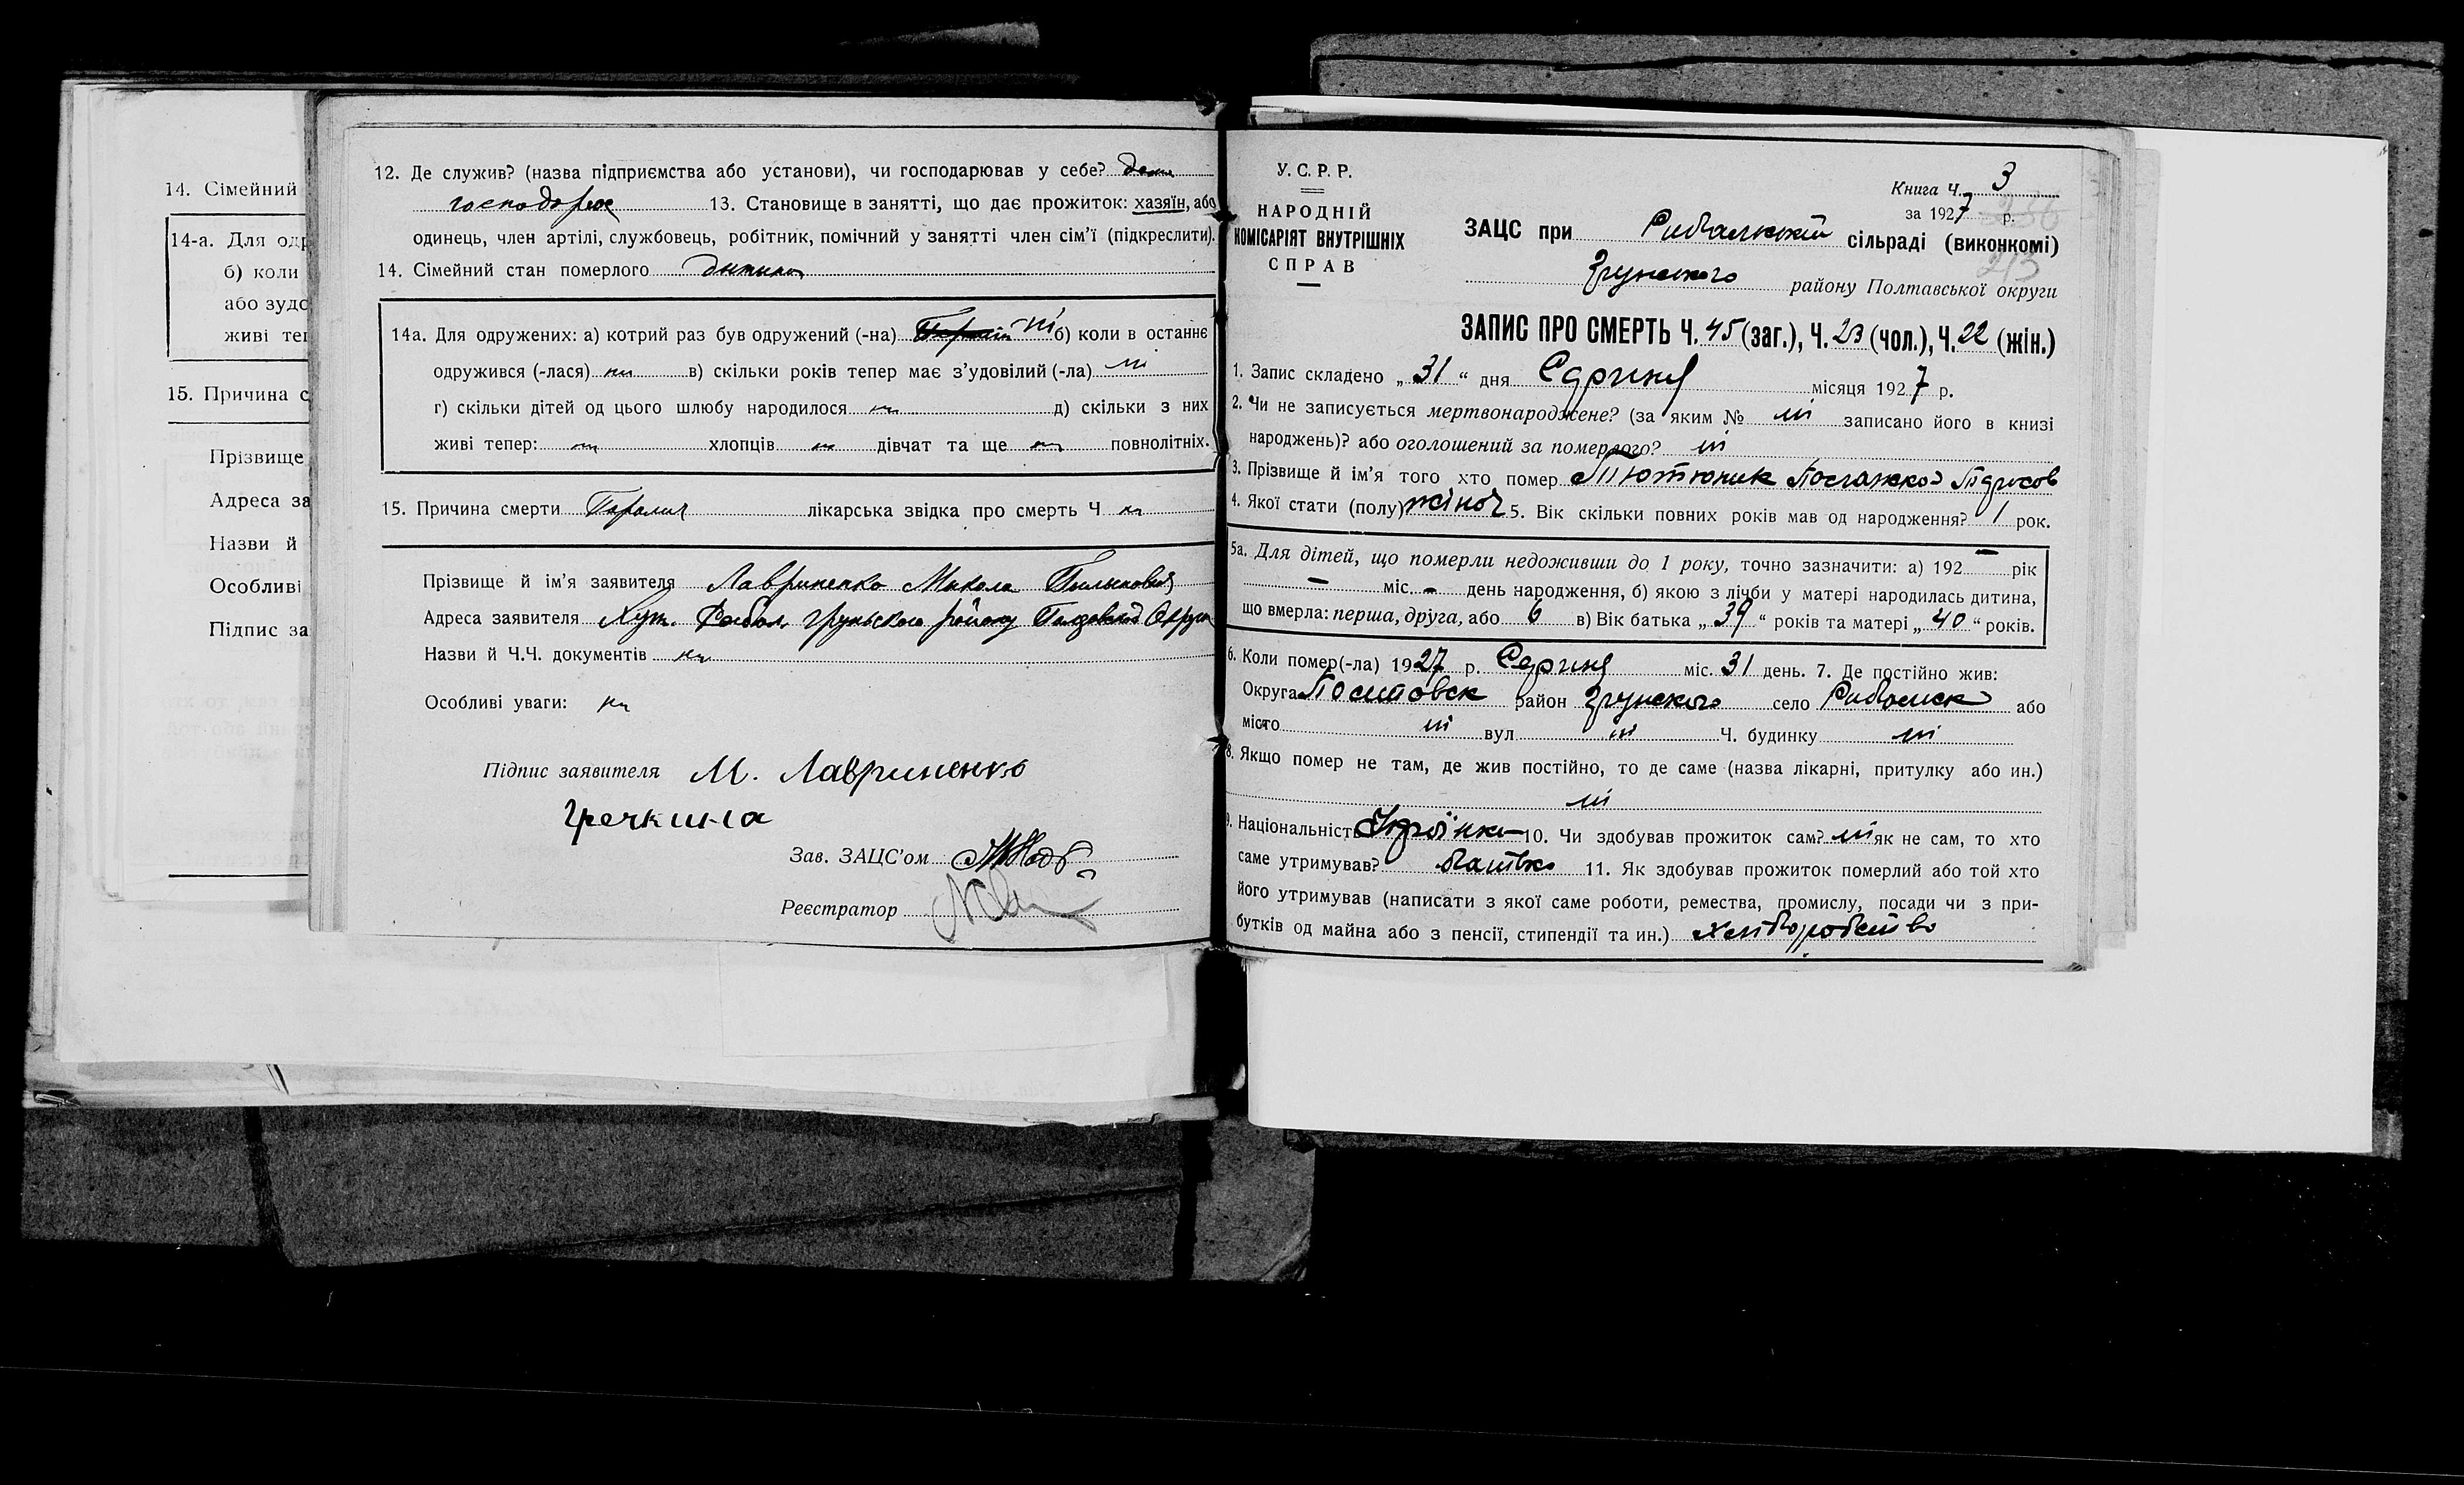 14. Сімейний
14-а. Для одр
б) коли
або зудо
живі теп
15. Причина с
Прізвище
Адреса за
Назви й
Особливі
Підпис за
12. Де служив? (назва підприємства або установи), чи господарював у себе? дома
господарює 13. Становище в занятті, що дає прожиток: хазяїн, або
одинець, член артілі, службовець, робітник, помічний у занятті член сім’ї (підкреслити).
14. Сімейний стан померлого дитина
14а. Для одружених: а) котрий раз був одружений (-на) ні б) коли в останнє
одружився (-лася) ні в) скільки років тепер має з’удовілий (-ла) ні
г) скільки дітей од цього шлюбу народилося ні д) скільки з них
живі тепер: ні хлопців ні дівчат та ще ні повнолітніх.
15. Причина смерти Параліч лікарська звідка про смерть Ч ні
Прізвище й ім’я заявителя Лавриненко Микола
Адреса заявителя Хут. Грунського району Округи
Назви й Ч.Ч. документів ні
Особливі уваги: ні
Підпис заявителя М. Лавриненко
Гречкина
Зав. ЗАЦС’ом
Реєстратор
У. С. Р. Р.
НАРОДНІЙ
КОМІСАРІЯТ ВНУТРІШНІХ
СПРАВ
Книга Ч. 3
за 1927 р.
ЗАЦС при Рибалкській сільраді (виконкомі)
213
Грунского району Полтавської округи
ЗАПИС ПРО СМЕРТЬ Ч. 45 (заг.), Ч. 23 (чол.), Ч. 22 (жін.)
1. Запис складено „ 31 “ дня Серпня місяця 1927 р.
2. Чи не записується мертвонароджене? (за яким № ні записано його в книзі
народжень)? або оголошений за померлого? ні
3. Прізвище й ім’я того хто помер Тютюник
4. Якої стати (полу) жіноч 5. Вік скільки повних років мав од народження? 1 рок.
5а. Для дітей, що померли недоживши до 1 року, точно зазначити: а) 192 — рік
— міс. - день народження, б) якою з лічби у матері народилась дитина,
що вмерла: перша, друга, або 6 в) Вік батька „ 39 “ років та матері „ 40 “ років.
6. Коли помер(-ла) 1927 р. Серпня міс. 31 день. 7. Де постійно жив:
Округа район Грунского село Рибальск або
місто ні вул ні Ч. будинку ні
8. Якщо помер не там, де жив постійно, то де саме (назва лікарні, притулку або ин.)
ні
9. Національність Українка 10. Чи здобував прожиток сам? ні як не сам, то хто
саме утримував? батько 11. Як здобував прожиток померлий або той хто
його утримував (написати з якої саме роботи, ремества, промислу, посади чи з при-
бутків од майна або з пенсії, стипендії та ин.) хліборобство